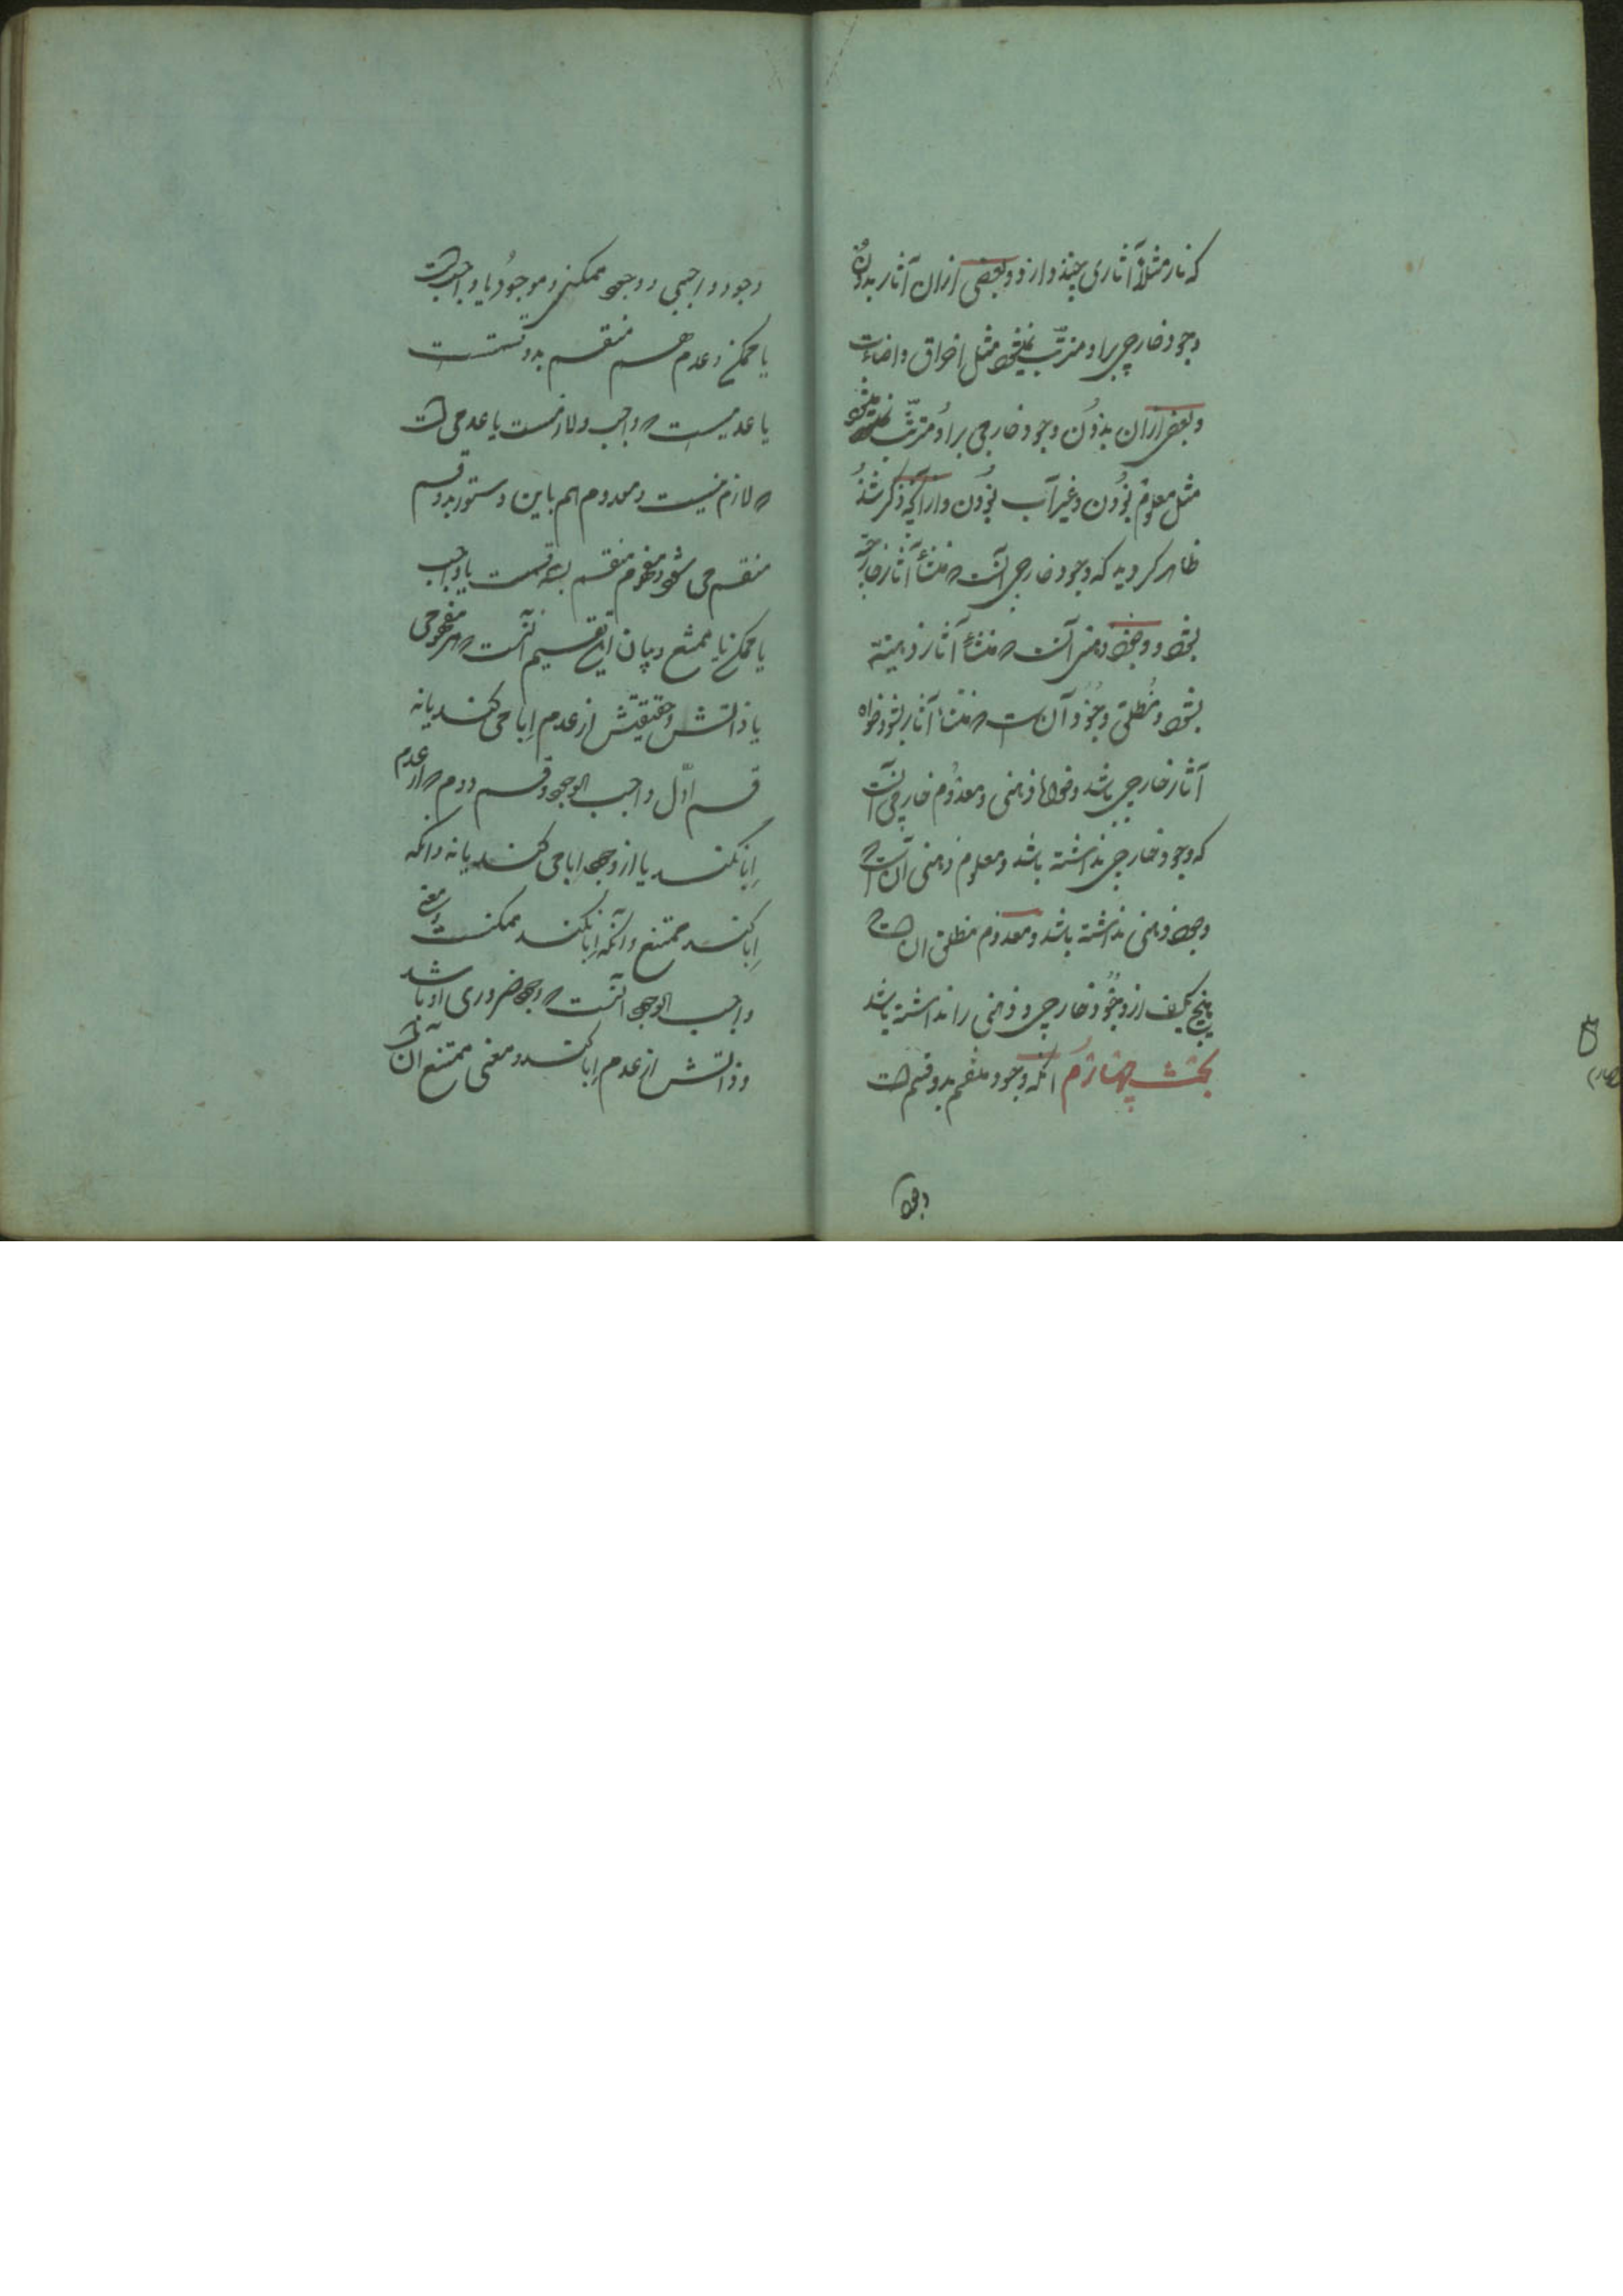 که نار مثلا آثاری چند دارد و بعضی ازان آثار بدون
وجود خارجی برا و مترتب نمیشود مثل احراق و اضاءت
و بعضی ازان بدون وجود خارجی برا و مترتب میشود
مثل معلوم بودن و غیر آب بودن و ازانکه ذکر شد
ظاهر کردید که وجود خارجی آنست که منشأ آثار خارجیه
بشود و وجود ذهنی آنست که منشأ آثار ذهنیه
بشود و مطلق وجود آن است که منشأ آثار بشود خواه
آثار خارجی باشد و خواه ذهنی و معدوم خارجی آنست
که وجود خارجی نداشته باشد و معدوم ذهنی آن است که
وجود ذهنی نداشته باشد و معدوم مطلق ان است که
هیچ یک از وجود خارجی و ذهنی را نداشته باشد
بحث چهارم انکه وجود منقسم بدو قسم است
وجود
وجود واجبی و وجود ممکنی و موجود یا واجب است
یا ممکن و عدم هم منقسم بدو قسمست
یا عدمیست که واجب و لازمست یا عدمی است
که لازم نیست و معدوم هم باین دستور بدو قسم
منقسم می شود و مفهوم منقسم بسه قسمست یا واجب
یا ممکن یا ممتنع و بیان این تقسیم آنست که هر مفهومی
یا ذاتش و حقیقتش از عدم إبا می کند یا نه
قسم اول واجب الوجود و قسم دوم که از عدم
إبا نکند یا از وجود إبا می کند یا نه و انکه
إبا کند ممتنع و انکه إبا نکند ممکنست و معنی
واجب الوجود آنست که وجود ضروری او باشد
و ذاتش از عدم إبا کند و معنی ممتنع آن